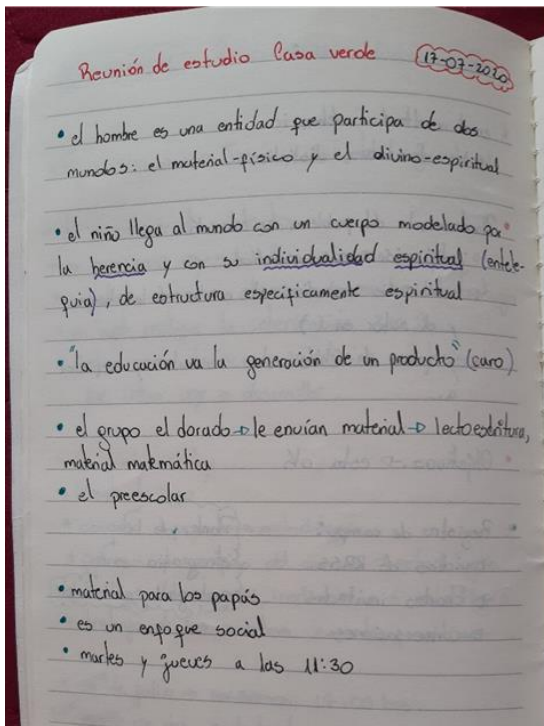 Reunión de estudio Casa verde 17-07-2020
• el hombre es una entidad que participa de dos
mundos: el material-físico y el divino-espiritual
• el niño llega al mundo con un cuerpo modelado por
la herencia y con su individualidad espiritual (entele-
quia), de estructura específicamente espiritual
• "la educación va la generación de un producto" (caro)
• el grupo el dorado → le envían material → lectoescritura,
material matemática
• el preescolar
• material para los papás
• es un enfoque social
• martes y jueves a las 11:30